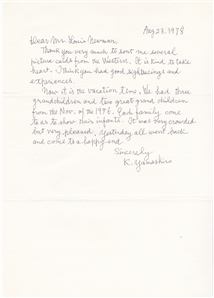 Aug 28, 1978
Dear Mr. Louis Newman,
Thank you very much to sent me several
picture cards from the Western. It is kind to take
heart. I think you had good sightseeings and
experiences.
Now it is the vacation time. We had three
grandchildren and two great grand children
from the Nov. of the 1976. Each family come
to us to show their infants. It was very crowded
but very pleased. Yesterday all went back
and come to a happy end.
Sincerely
K. Yamashiro